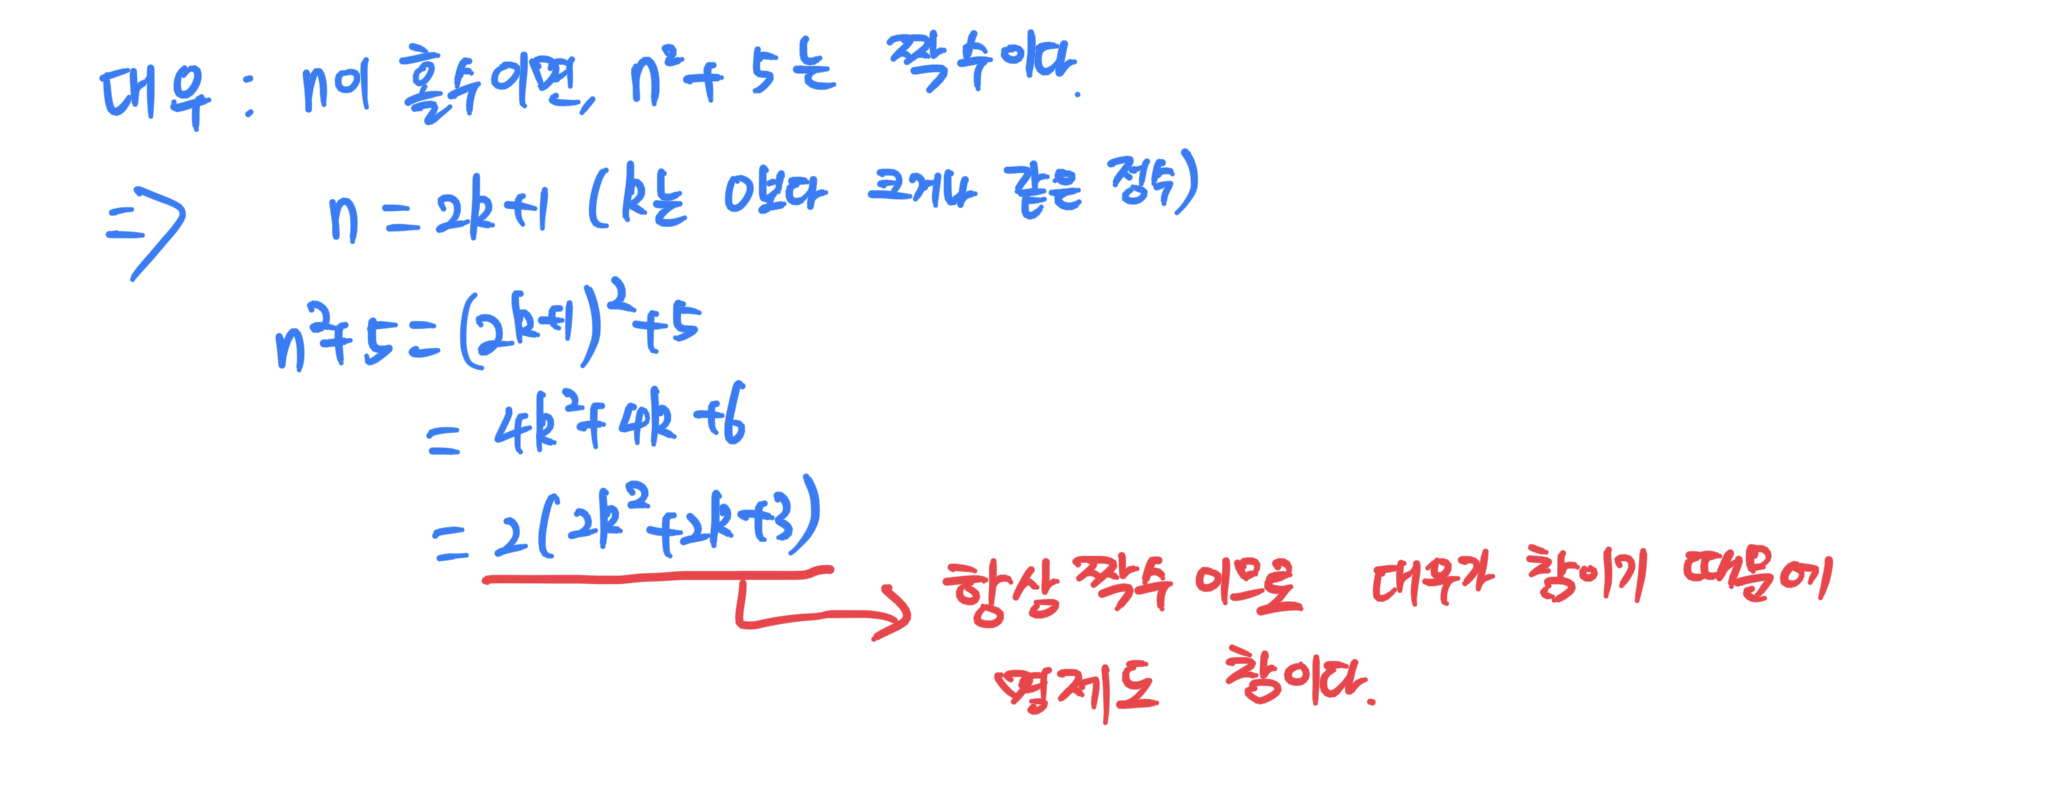 대우 : n이 홀수이면, n²+5는 짝수이다.
⇒ n = 2k+1 (k는 0보다 크거나 같은 정수)
n²+5 = (2k+1)²+5
= 4k²+4k+6
= 2(2k²+2k+3)
→ 항상 짝수 이므로 대우가 참이기 때문에
명제도 참이다.